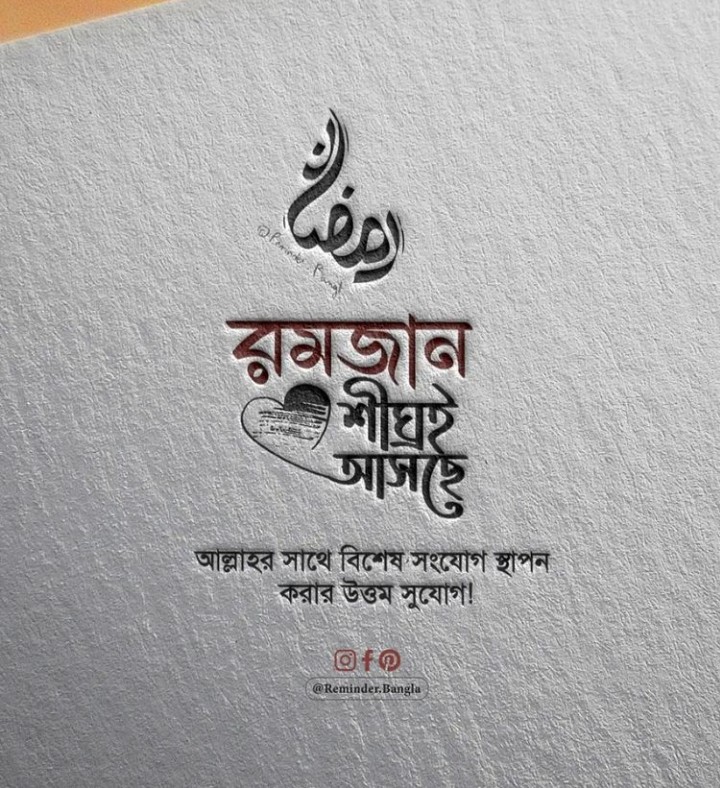 رمضان
@Reminder Bangla
রমজান
শীঘ্রই
আসছে
আল্লাহর সাথে বিশেষ সংযোগ স্থাপন
করার উত্তম সুযোগ!
@Reminder.Bangla